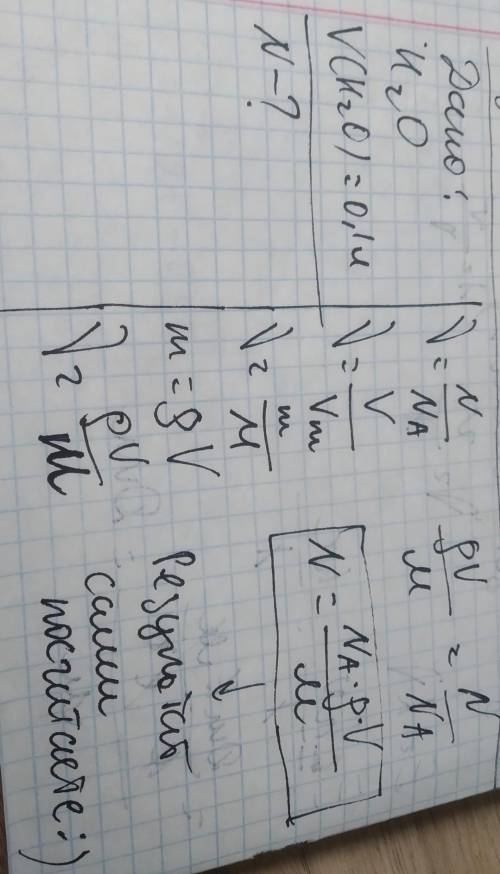 Дано:
H₂O
V(H₂O) = 0,1л
N - ?
ν = N/Nₐ
ν = V/Vm
ν = m/M
m = ρV
ν = ρV/M
ρV/M = N/Nₐ
N = Nₐ·ρ·V/M
↓
Результат
сами
посчитаете:)